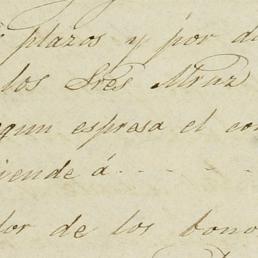 plazos y por d
los Sres
egun espresa el con
iende á - - - -
lor de los bono